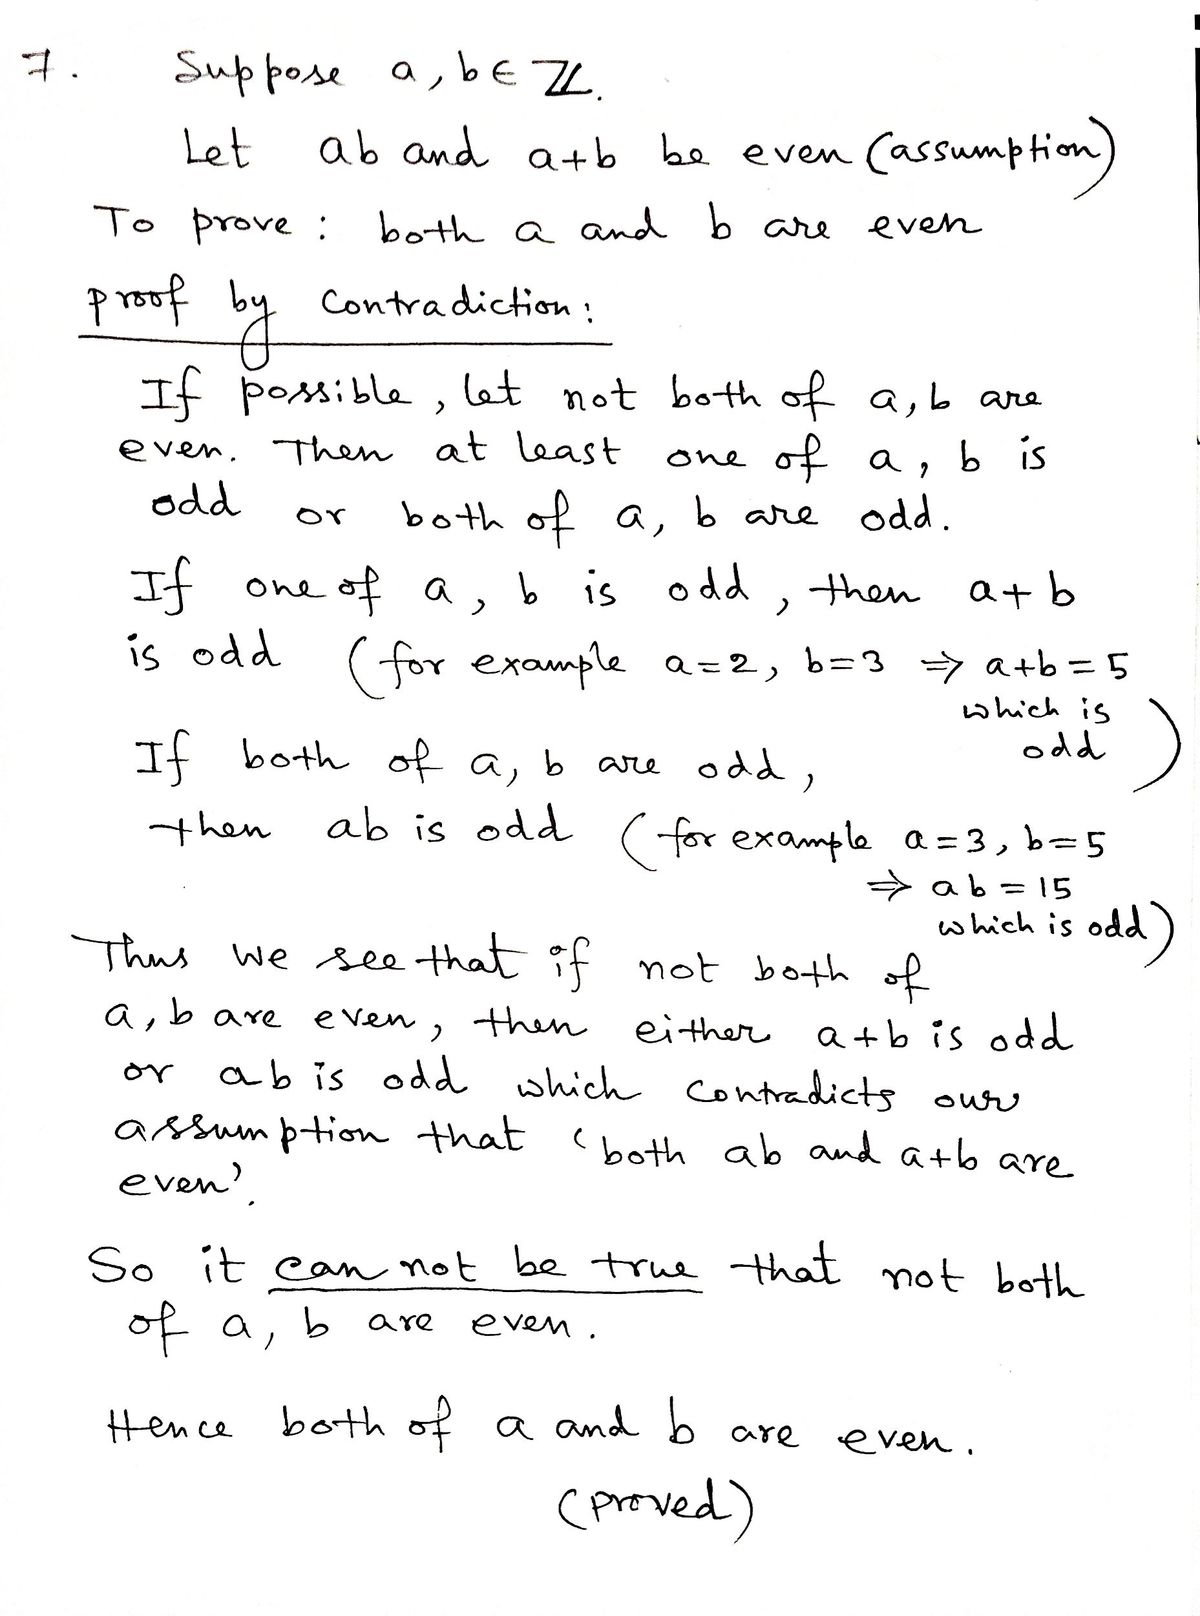 7. Suppose a, b ∈ ℤ.
Let ab and a+b be even (assumption)
To prove : both a and b are even
proof by contradiction :
If possible, let not both of a, b are
even. Then at least one of a, b is
odd or both of a, b are odd.
If one of a, b is odd, then a+b
is odd (for example a=2, b=3 ⇒ a+b=5
which is
odd)
If both of a, b are odd,
then ab is odd (for example a=3, b=5
⇒ ab=15
which is odd)
Thus we see that if not both of
a, b are even, then either a+b is odd
or ab is odd which contradicts our
assumption that 'both ab and a+b are
even'.
So it can not be true that not both
of a, b are even.
Hence both of a and b are even.
(proved)